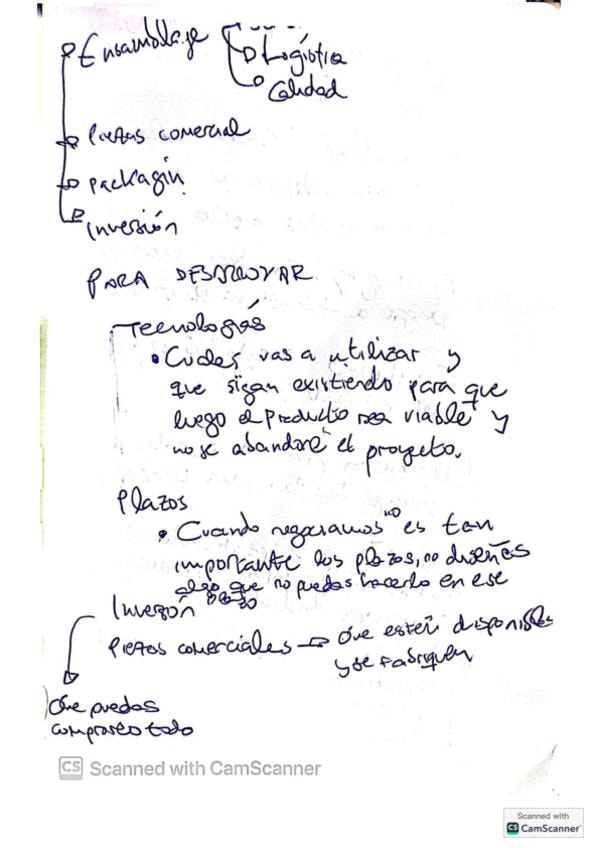 Ensamblaje
Logística
Calidad
Piezas comercial
packagin
inversión
PARA DESARROYAR
Tecnologías
• Cuales vas a utilizar y
que sigan existiendo para que
luego el producto sea viable y
no se abandone el proyecto.
Plazos
no
• Cuando negociamos es tan
importante los plazos, no diseñes
algo que no puedas hacerlo en ese
plazo
Inversión
Piezas comerciales → Que esten disponibles
y se fabriquen
Que puedas
comprarlo todo
CS Scanned with CamScanner
Scanned with
CS CamScanner